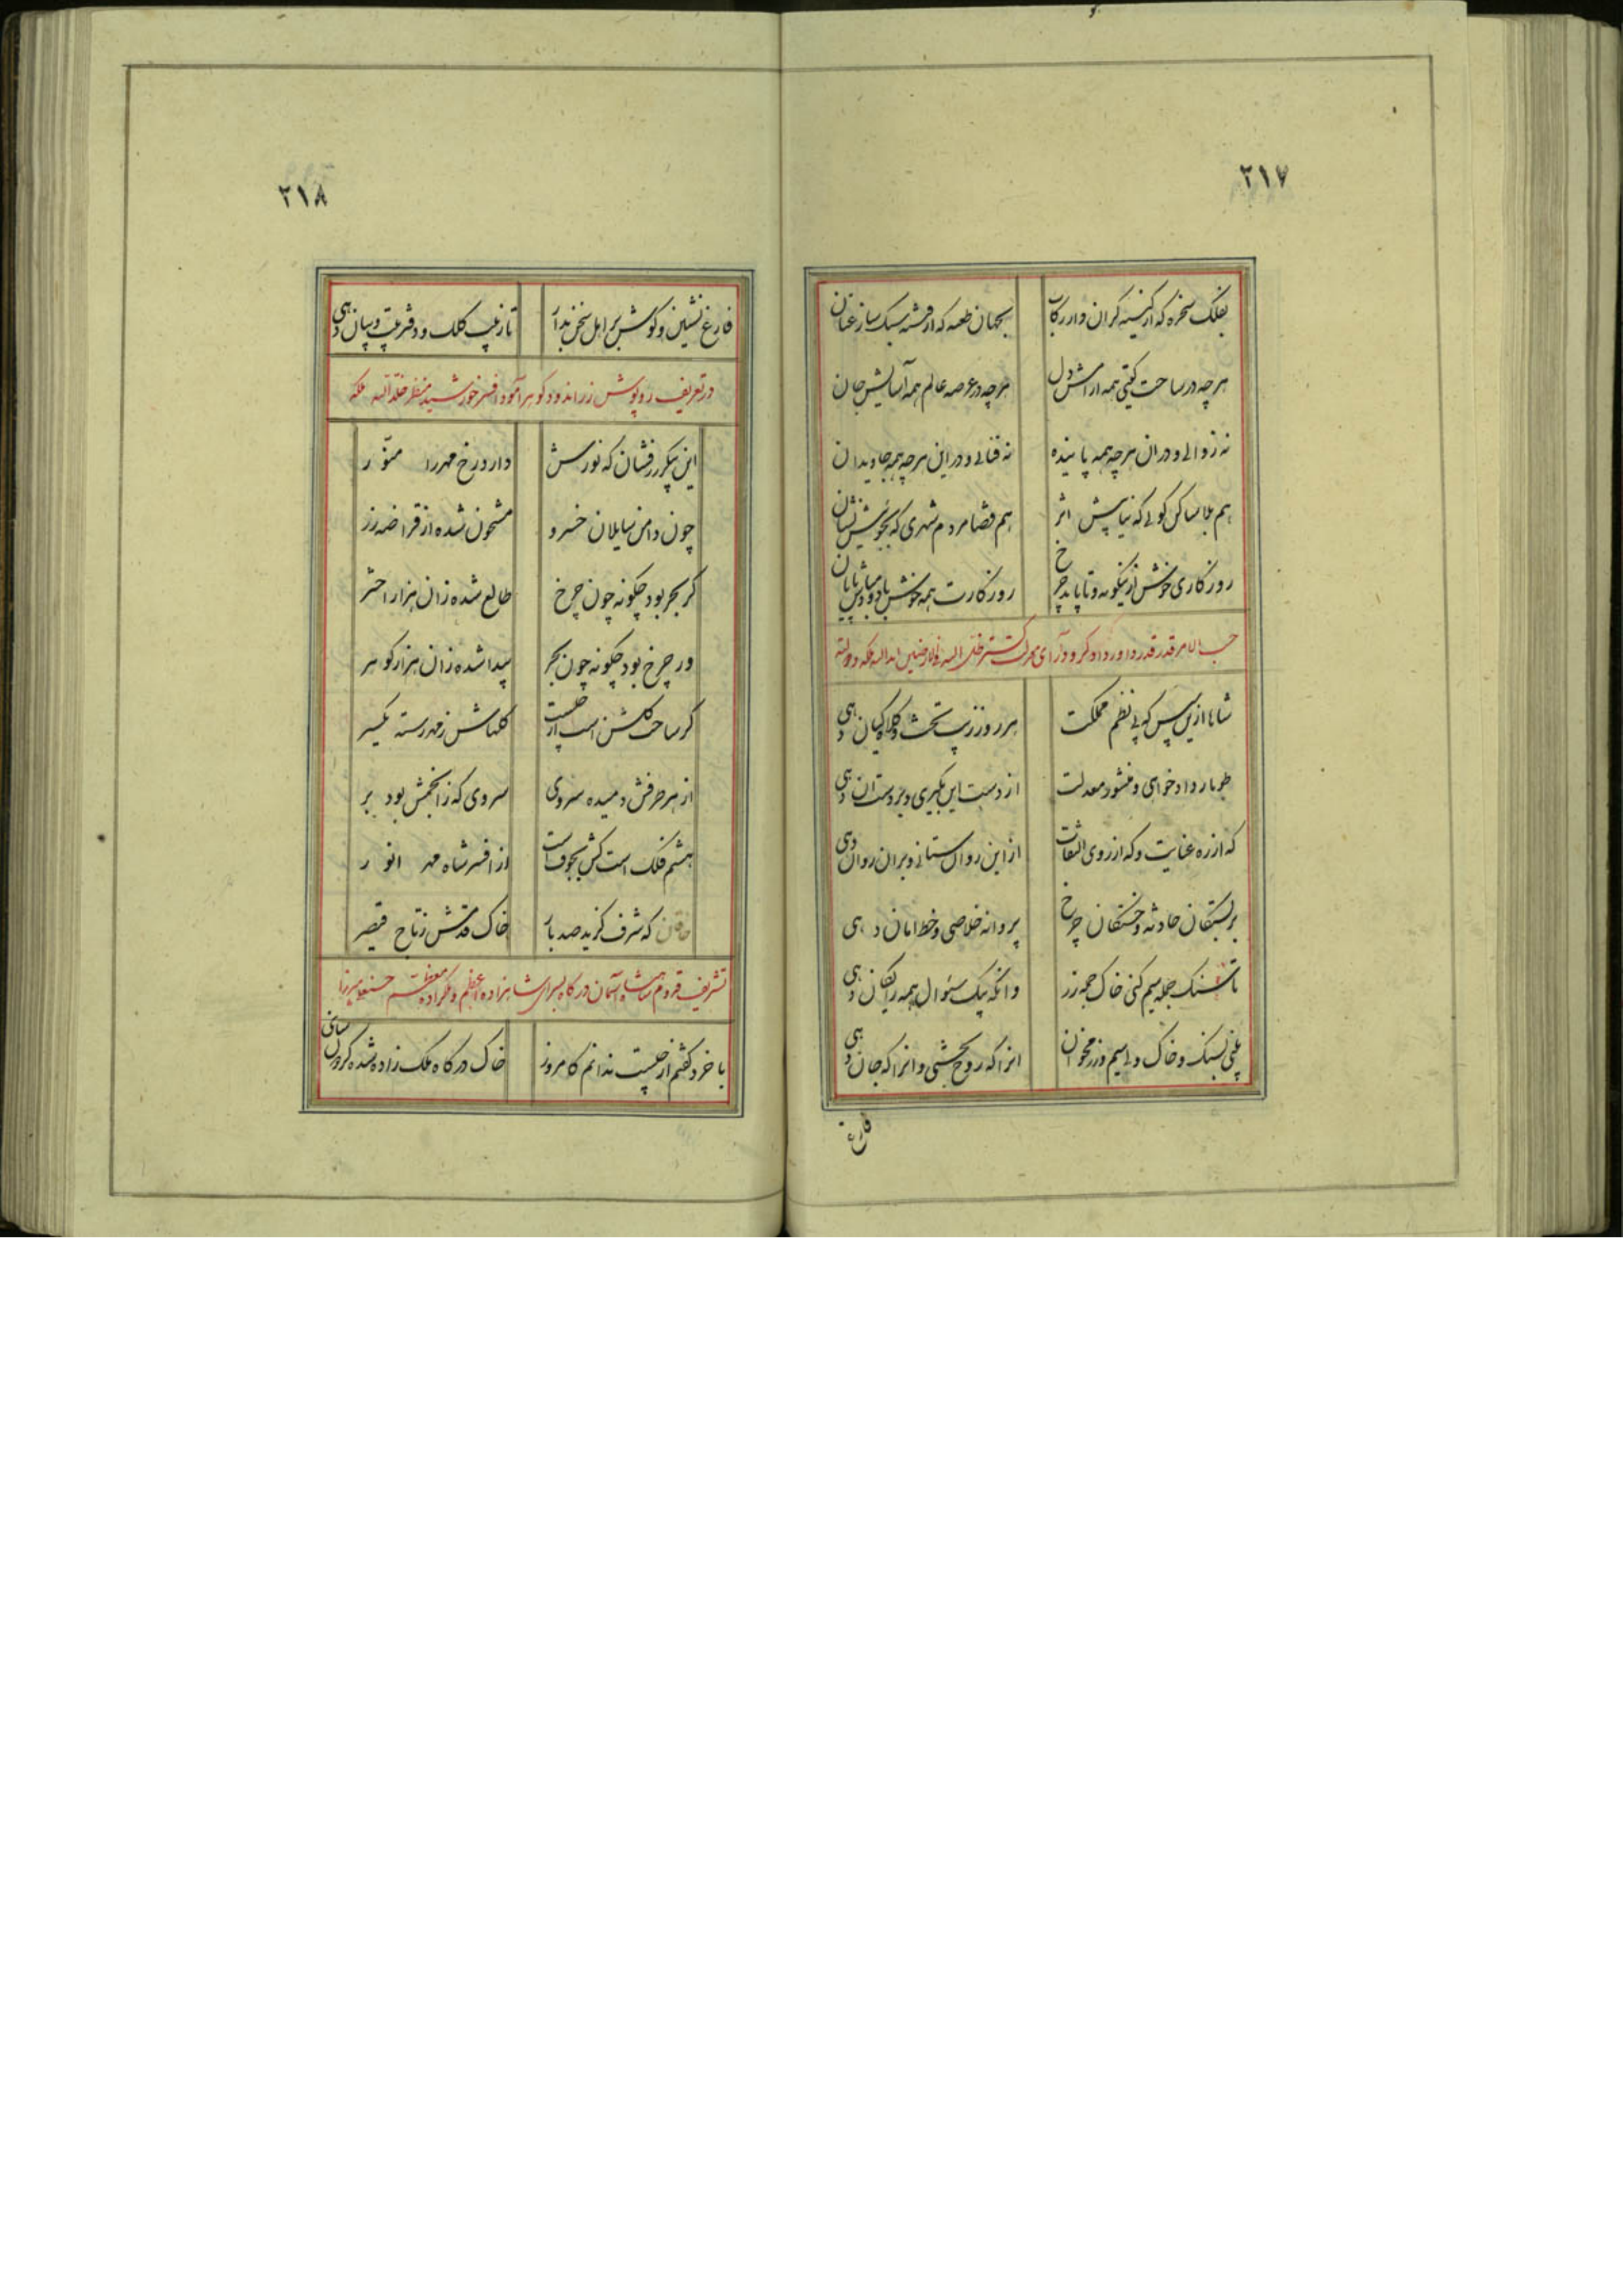 ۲۱۷
بفلک سخره که از کینه گران دار رکاب بجهان طعنه که از فتنه سبک ساز عنان
هر چه در ساحت گیتی همه آرامش دل هر چه در عرصه عالم همه آسایش جان
نه زوالی و در ان هر چه همه پاینده نه فنائی و در این هر چه همه جاویدان
هم بلا ساکن کوئی که نیابیش اثر هم قضا مردم شهری که نجوئیش نشان
روزگاری خوش ازینگونه و تا پاید چرخ روزگارت همه خوش باد و مبادش پایان
حسب الامر قدر قدر داور
شاها ازین سپس که پی نظم مملکت هر روز زیب تخت و کلاه کیان دهی
طومار دادخواهی و منشور معدلت از دست این بگیری و بر دست آن دهی
که از ره عنایت و که از روی التفات از این روان ستانی و بر ان روان دهی
بر بستگان حادثه و خستگان چرخ پروانه خلاصی و خط امان دهی
تا سنگ جمله سیم کنی خاک جمله زر وانگه بیک سئوال همه رایگان دهی
یعنی بسنگ و خاک ولی سیم و زر مخوان انرا که روح بخشی و انرا که جان دهی
فارغ
۲۱۸
فارغ نشین و گوش بر اهل سخن بدار تا زیب کلک و دفتر و زیب و بیان دهی
در تعریف روپوش زر اندود گوهر آمود افسر خورشید منظر خلد الله ملکه
این پیکر زرفشان که نورش دارد رخ مهر را منور
چون دامن سایلان خسرو مشحون شده از قراضه زر
گر بحر بود چگونه چون چرخ طالع شده زان هزار اختر
ور چرخ بود چگونه چون بحر پیدا شده زان هزار گوهر
گر ساحت گلشن است از چیست گلهاش ز مهر رسته یکسر
از هر طرفش دمیده سروی سروی که ز انجمش بود بر
هشتم فلک است کش بجوف است از افسر شاه مهر انور
خاقان که شرف گزید صد بار خاک قدمش ز تاج قیصر
تشریف قدوم شاهنشاه آسمان درگاه بسرای شاهزاده اعظم و ملکزاده معظم حسنعلی میرزا
با خرد گفتم از چیست ندانم کامروز خاک درگاه ملک زاده شده گردون سای